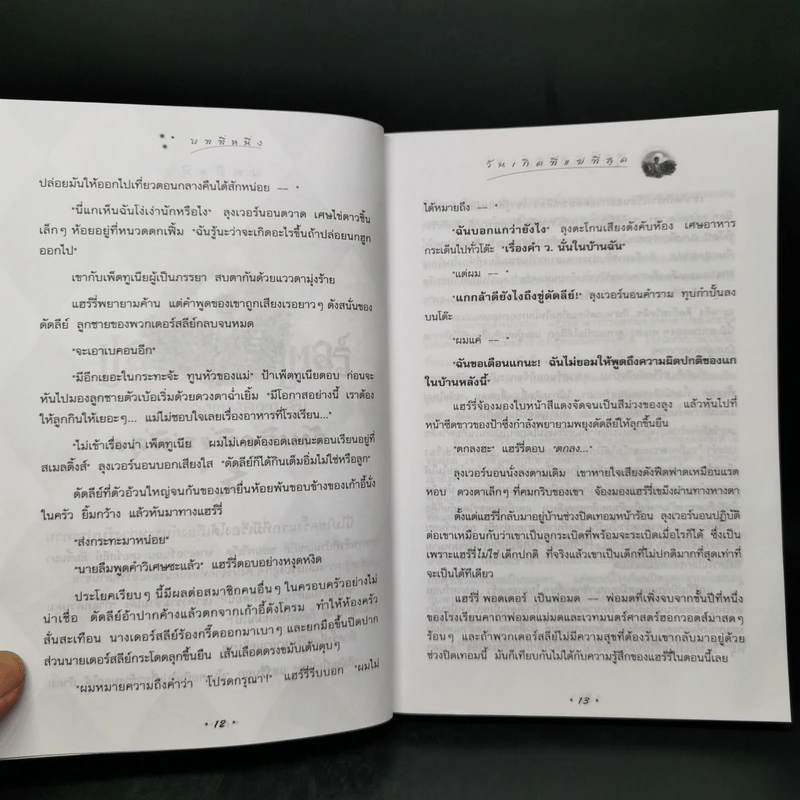 บทที่หนึ่ง
ปล่อยมันให้ออกไปเที่ยวตอนกลางคืนได้สักหน่อย -- "
"นี่แกเห็นฉันโง่เง่านักหรือไง" ลุงเวอร์นอนตวาด เศษไข่ดาวชิ้น
เล็กๆ ห้อยอยู่ที่หนวดดกเฟิ้ม "ฉันรู้นะว่าจะเกิดอะไรขึ้นถ้าปล่อยนกฮูก
ออกไป"
เขากับเพ็ตทูเนียผู้เป็นภรรยา สบตากันด้วยแววตามุ่งร้าย
แฮร์รี่พยายามค้าน แต่คำพูดของเขาถูกเสียงเรอยาวๆ ดังสนั่นของ
ดัดลีย์ ลูกชายของพวกเดอร์สลีย์กลบจนหมด
"จะเอาเบคอนอีก"
"มีอีกเยอะในกระทะจ้ะ ทูนหัวของแม่" ป้าเพ็ตทูเนียตอบ ก่อนจะ
หันไปมองลูกชายตัวเบ้อเริ่มด้วยดวงตาฉ่ำเยิ้ม "มีโอกาสอย่างนี้ เราต้อง
ให้ลูกกินให้เยอะๆ... แม่ไม่ชอบใจเลยเรื่องอาหารที่โรงเรียน..."
"ไม่เข้าเรื่องน่า เพ็ตทูเนีย ผมไม่เคยต้องอดเลยนะตอนเรียนอยู่ที่
สเมลติ้งส์" ลุงเวอร์นอนบอกเสียงใส "ดัดลีย์ก็ได้กินเต็มอิ่มไม่ใช่หรือลูก"
ดัดลีย์ที่ตัวอ้วนใหญ่จนก้นของเขายื่นห้อยพ้นขอบข้างของเก้าอี้นั่ง
ในครัว ยิ้มกว้าง แล้วหันมาทางแฮร์รี่
"ส่งกระทะมาหน่อย"
"นายลืมพูดคำวิเศษซะแล้ว" แฮร์รี่ตอบอย่างหงุดหงิด
ประโยคเรียบๆ นี้มีผลต่อสมาชิกคนอื่นๆ ในครอบครัวอย่างไม่
น่าเชื่อ ดัดลีย์อ้าปากค้างแล้วตกจากเก้าอี้ดังโครม ทำให้ห้องครัว
สั่นสะเทือน นางเดอร์สลีย์ร้องกรี๊ดออกมาเบาๆ และยกมือขึ้นปิดปาก
ส่วนนายเดอร์สลีย์กระโดดลุกขึ้นยืน เส้นเลือดตรงขมับเต้นตุบๆ
"ผมหมายความถึงคำว่า 'โปรดกรุณา'!" แฮร์รี่รีบบอก "ผมไม่
• 12 •
วันเกิดที่แย่ที่สุด
ได้หมายถึง -- "
"ฉันบอกแกว่ายังไง" ลุงตะโกนเสียงดังคับห้อง เศษอาหาร
กระเด็นไปทั่วโต๊ะ "เรื่องคำ ว. นั่นในบ้านฉัน"
"แต่ผม -- "
"แกกล้าดียังไงถึงขู่ดัดลีย์!" ลุงเวอร์นอนคำราม ทุบกำปั้นลง
บนโต๊ะ
"ผมแค่ -- "
"ฉันขอเตือนแกนะ! ฉันไม่ยอมให้พูดถึงความผิดปกติของแก
ในบ้านหลังนี้"
แฮร์รี่จ้องมองใบหน้าสีแดงจัดจนเป็นสีม่วงของลุง แล้วหันไปที่
หน้าซีดขาวของป้าซึ่งกำลังพยายามพยุงดัดลีย์ให้ลุกขึ้นยืน
"ตกลงฮะ" แฮร์รี่ตอบ "ตกลง..."
ลุงเวอร์นอนนั่งลงตามเดิม เขาหายใจเสียงดังฟืดฟาดเหมือนแรด
หอบ ดวงตาเล็กๆ ที่คมกริบของเขา จ้องมองแฮร์รี่เขม็งผ่านทางหางตา
ตั้งแต่แฮร์รี่กลับมาอยู่บ้านช่วงปิดเทอมหน้าร้อน ลุงเวอร์นอนปฏิบัติ
ต่อเขาเหมือนกับว่าเขาเป็นลูกระเบิดที่พร้อมจะระเบิดเมื่อไรก็ได้ ซึ่งเป็น
เพราะแฮร์รี่ไม่ใช่เด็กปกติ ที่จริงแล้วเขาเป็นเด็กที่ไม่ปกติมากที่สุดเท่าที่
จะเป็นได้ทีเดียว
แฮร์รี่ พอตเตอร์ เป็นพ่อมด -- พ่อมดที่เพิ่งจบจากชั้นปีที่หนึ่ง
ของโรงเรียนคาถาพ่อมดแม่มดและเวทมนตร์ศาสตร์ฮอกวอตส์มาสดๆ
ร้อนๆ และถ้าพวกเดอร์สลีย์ไม่มีความสุขที่ต้องรับเขากลับมาอยู่ด้วย
ช่วงปิดเทอมนี้ มันก็เทียบกันไม่ได้กับความรู้สึกของแฮร์รี่ในตอนนี้เลย
• 13 •